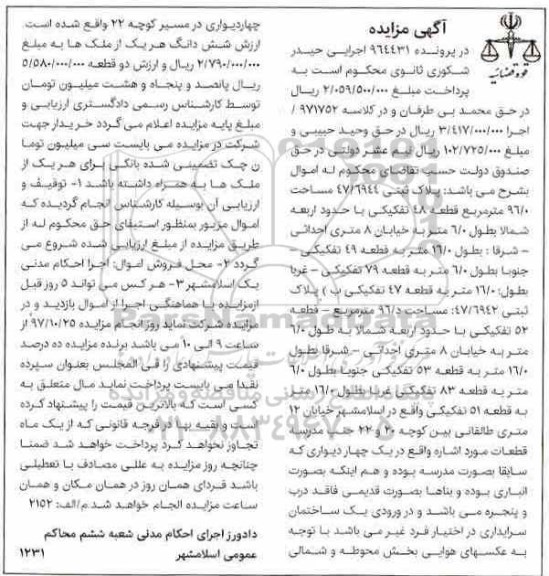 آگهی مزایده
قوه قضائیه
در پرونده ۹۶۴۴۳۱ اجرایی حیدر
شکوری ثانوی محکوم است به
پرداخت مبلغ ۲/۰۵۹/۵۰۰/۰۰۰ ریال
در حق محمد بی طرفان و در کلاسه ۹۷۱۷۵۲/
اجرا ۳/۴۱۷/۰۰۰/۰۰۰ ریال در حق وحید حبیبی و
مبلغ ۱۰۲/۷۲۵/۰۰۰ ریال نیم عشر دولتی در حق
صندوق دولت حسب تقاضای محکوم له اموال
بشرح می باشد: پلاک ثبتی ۴۷/۶۹۴۴ مساحت
۹۶/۰ مترمربع قطعه ۴۸ تفکیکی با حدود اربعه
شمالا بطول ۶/۰ متر به خیابان ۸ متری احداثی
- شرقا : بطول ۱۶/۰ متر به قطعه ۴۹ تفکیکی -
جنوبا بطول ۶/۰ متر به قطعه ۷۹ تفکیکی - غربا
بطول: ۱۶/۰ متر به قطعه ۴۷ تفکیکی ب ) پلاک
ثبتی ۴۷/۶۹۴۲: مساحت ۹۶/د مترمربع - قطعه
۵۲ تفکیکی با حدود اربعه شمالا به طول ۶/۰
متر به خیابان ۸ متری احداثی - شرقا بطول ۱۶/۰
متر به قطعه ۵۳ تفکیکی جنوبا بطول ۶/۰
متر به قطعه ۸۳ تفکیکی غربا بطول ۱۶/۰ متر
به قطعه ۵۱ تفکیکی واقع در اسلامشهر خیابان ۱۲
متری طالقانی بین کوچه ۲۰ و ۲۲ جنب مدرسه
قطعات مورد اشاره واقع در یک چهار دیواری که
سابقا بصورت مدرسه بوده و هم اینکه بصورت
انباری بوده و بناها بصورت قدیمی فاقد درب
و پنجره می باشد و در ورودی یک ساختمان
سرایداری در اختیار فرد غیر می باشد با توجه
به عکسهای هوایی بخش محوطه و شمالی
چهاردیواری در مسیر کوچه ۲۲ واقع شده است.
ارزش شش دانگ هر یک از ملک ها به مبلغ
۲/۷۹۰/۰۰۰/۰۰۰ ریال و ارزش دو قطعه ۵/۵۸۰/۰۰۰/۰۰۰
ریال پانصد و پنجاه و هشت میلیون تومان
توسط کارشناس رسمی دادگستری ارزیابی و
مبلغ پایه مزایده اعلام می گردد خریدار جهت
شرکت در مزایده می بایست سی میلیون توما
ن چک تضمینی شده بانکی برای هر یک از
ملک ها به همراه داشته باشد ۱- توقیف و
ارزیابی آن بوسیله کارشناس انجام گردیده که
اموال مزبور بمنظور استیفای حق محکوم له از
طریق مزایده از مبلغ ارزیابی شده شروع می
گردد ۲- محل فروش اموال: اجرا احکام مدنی
یک اسلامشهر ۳- هر کس می تواند ۵ روز قبل
ازمزایده با هماهنگی اجرا از اموال بازدید و در
مزایده شرکت نماید روز انجام مزایده ۹۷/۱۰/۲۵ از
ساعت ۹ الی ۱۰ می باشد برنده مزایده ده درصد
قیمت پیشنهادی را فی المجلس بعنوان سپرده
نقدا می بایست پرداخت نماید مال متعلق به
کسی است که بالاترین قیمت را پیشنهاد کرده
است و بقیه بها در فرجه قانونی که از یک ماه
تجاوز نخواهد کرد پرداخت خواهد شد ضمنا
چنانچه روز مزایده به عللی مصادف با تعطیلی
باشد فردای همان روز در همان مکان و همان
ساعت مزایده انجام خواهد شد.م/الف: ۲۱۵۲
دادورز اجرای احکام مدنی شعبه ششم محاکم
عمومی اسلامشهر ۱۲۳۱
ParsNamadData